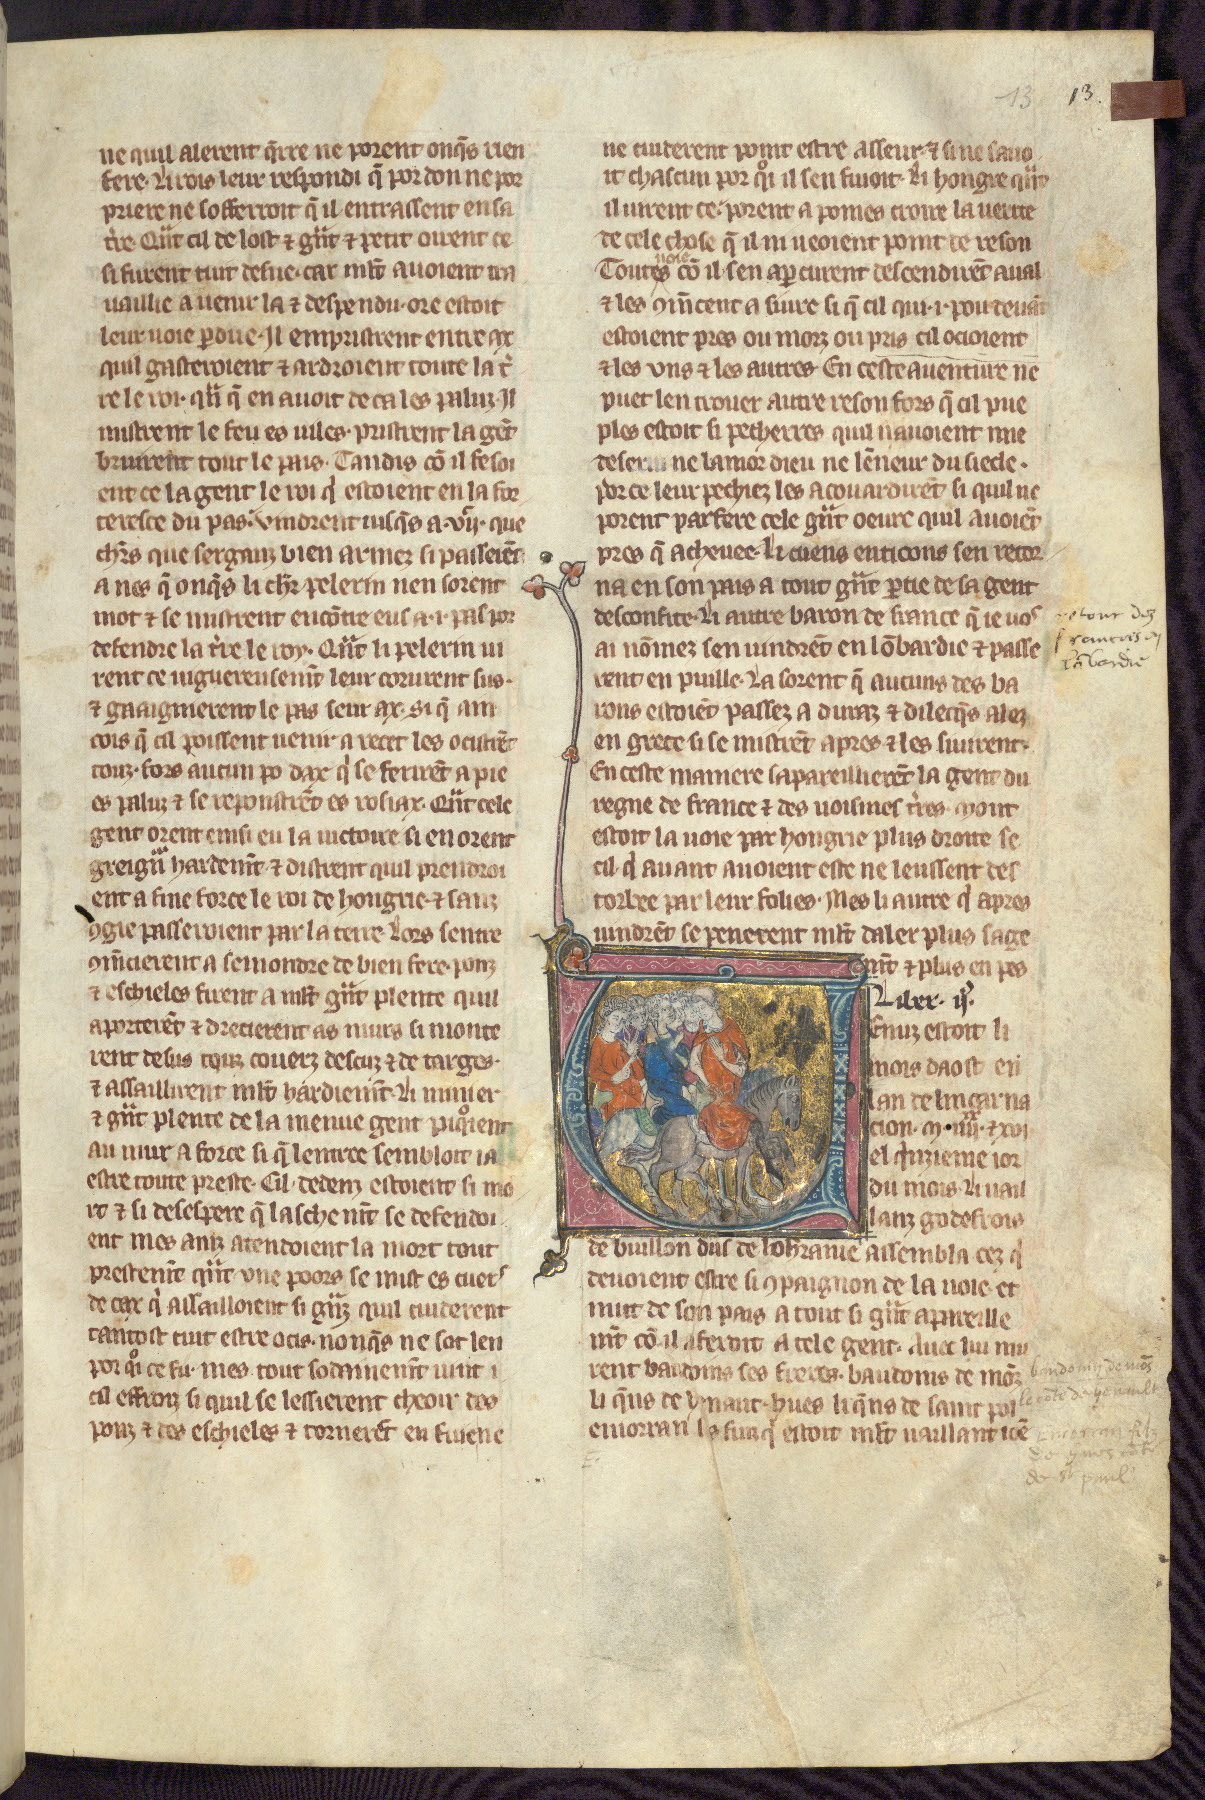 13 13.
ne quil alerent q̄rre ne porent onq̄s rien
fere. Li rois leur respondi q̄ por don ne por
priere ne sofferroit q̄ il entrassent en sa
t̄re. Q̄nt cil de lost ⁊ g̃nt ⁊ petit oirent ce
si furent tuit desue. car ml̃t auoient tra
uaillie a uenir la ⁊ despendu. ore estoit
leur uoie p̱due. Il empristrent entre ax
quil gasteroient ⁊ ardroient toute la t̄
re le roi. q̄ñ q̄ en auoit de ca les paluz. Il
mistrent le feu es uiles. pristrent la gēt
bruirent tout le pais. Tandis cō il fesoi
ent ce la gent le roi q̇ estoient en la for
teresce du pas. vindrent iusq̄s a .vij. que
ch̃rs que serganz bien armez si passerēt
a nes q̄ onq̄s li ch̃r pelerin nen sorent
mot ⁊ se mistrent encōtre eus a .i. pas por
defendre la t̄re le roy. Q̄nt li pelerin ui
rent ce uiguereusemt̄ leur corurent sus.
⁊ gaaignierent le pas seur ax. si q̄ ain
cois q̄ cil poissent uenir a recet les ocistrēt
touz. fors aucun po dax q̇ se ferirēt a pie
es paluz ⁊ se reponstrēt es rosiax. Q̄nt cele
gent orent ensi eu la uictoire si en orent
greign̄ hardemt̄. ⁊ distrent quil prendroi
ent a fine force le roi de hongrie. ⁊ sanz
ꝯgie passeroient par la terre. Lors sentre
ꝯm̄cierent a semondre de bien fere. ponz
⁊ eschieles firent a ml̃t g̃nt plente quil
aporterēt ⁊ drecierent as murs si monte
rent desus touz couerz descuz ⁊ de targes.
⁊ assaillirent ml̃t hardiemt̄. Li minier
⁊ g̃nt plente de la menue gent piq̊ient
au mur a force si q̄ lentree sembloit ia
estre toute preste. Cil dedenz estoient si mo
rt ⁊ si desespere q̄ laschemt̄ se defendoi
ent mes anz atendoient la mort tout
prestemt̄ q̄nt vne poors se mist es cuers
de cax q̇ assailloient si g̃nz quil cuiderent
tantost tuit estre ocis. nonq̄s ne sot len
por q̊i ce fu. mes tout sodainemt̄ uint i
cil effroiz si quil se lessierent cheoir des
ponz ⁊ des eschieles ⁊ tornerēt en fuie ne
ne cuiderent point estre asseur. ⁊ si ne sauo
it chascun por q̊i il sen fuioit. Li hongre q̄nt
il uirent ce. porent a poines croire la uerite
de cele chose q̄ il ni ueoient point de reson
uoie
Toutes cō il sen ap̱curent descendirēt aual
⁊ les ꝯm̄cent a siure si q̄ cil qui .i. pou deuāt
estoient pres ou morz ou pris cil ocioient
⁊ les vns ⁊ les autres. En ceste auenture ne
puet len trouer autre reson fors q̄ cil pue
ples estoit si pecherres quil nauoient mie
ne lamor dieu ne lēneur du siecle.
por ce leur pechiez les acouardirēt si quil ne
porent parfere cele g̃nt oeure quil auoiēt
pres q̄ acheuee. Li cuens enticons sen retor
na en son pais a tout g̃nt p̱tie de sa gent
desconfite. Li autre baron de france q̄ ie uos
ai nōmez sen uindrēt en lōbardie ⁊ passe
rent en puille. La sorent q̄ aucuns des ba
rons estoiēt passez a duraz ⁊ dilecq̄s alez
en grece si se mistrēt apres ⁊ les siuirent.
En ceste maniere sapareillierēt la gent du
regne de france ⁊ des uoisines t̄res. Mout
estoit la uoie par hongrie plus droite se
cil q̇ auant auoient este ne leussent des
torbee par leur folies. Mes li autre q̇ apres
uindrēt se penerent ml̃t daler plus sage
mt̄ ⁊ plus en pes
Liber .ij.
Enuz estoit li
mois daost en
lan de lincarna
cion .M. .iiij. ⁊ xvi
el q̇nzieme ior
du mois. Li uail
lanz godefrois
de buillon dus de lohranie assembla cez q̇
deuoient estre si ꝯpaignon de la uoie. et
mut de son pais a tout si g̃nt apareille
mt̄ cō il aferoit a tele gent. Auec lui mu
rent baudoins ses freres. baudoins de mōz
li q̄ns de henaut. hues li q̄ns de saint pol
eniorran ses fiuz q̇ estoit ml̃t uaillant ioē
retour dez
francois en
lōbardie
baudoīn de mōs
le cōte de henault
Eniorran filz
de hues cōte
de st paul